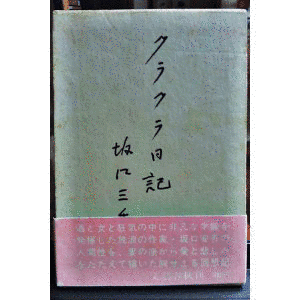 クラクラ日記
坂口三千
酒と女と狂気の中に非凡な才能を
発揮した放浪の作家・坂口安吾の
人間性を、妻の座から愛と悲しみ
をたたえて描いた胸せまる回想記